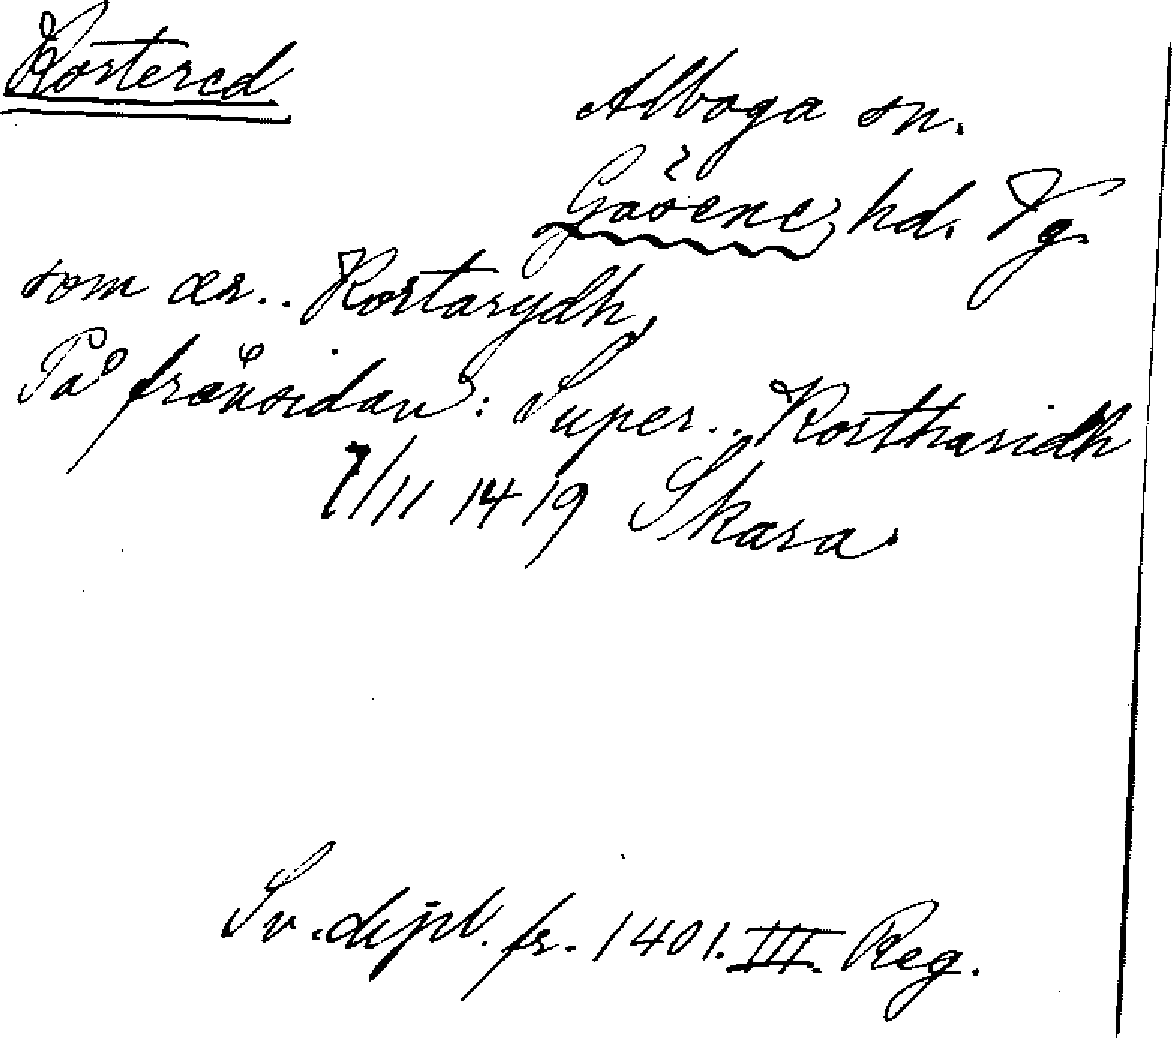 Kortered
Alboga sn.
Gäsene hd. Vg.
som ær.. Kortarydh,
På frånsidan: Super.. Kortharidh
7/11 1419 Skara.
Sv. dipl. fr. 1401. III. Reg.